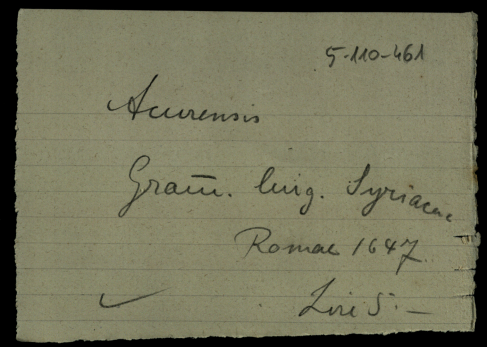 5-110-461
Acurensis
Gram̄. ling. Syriacae
Romae 1647.
Lire 5.—